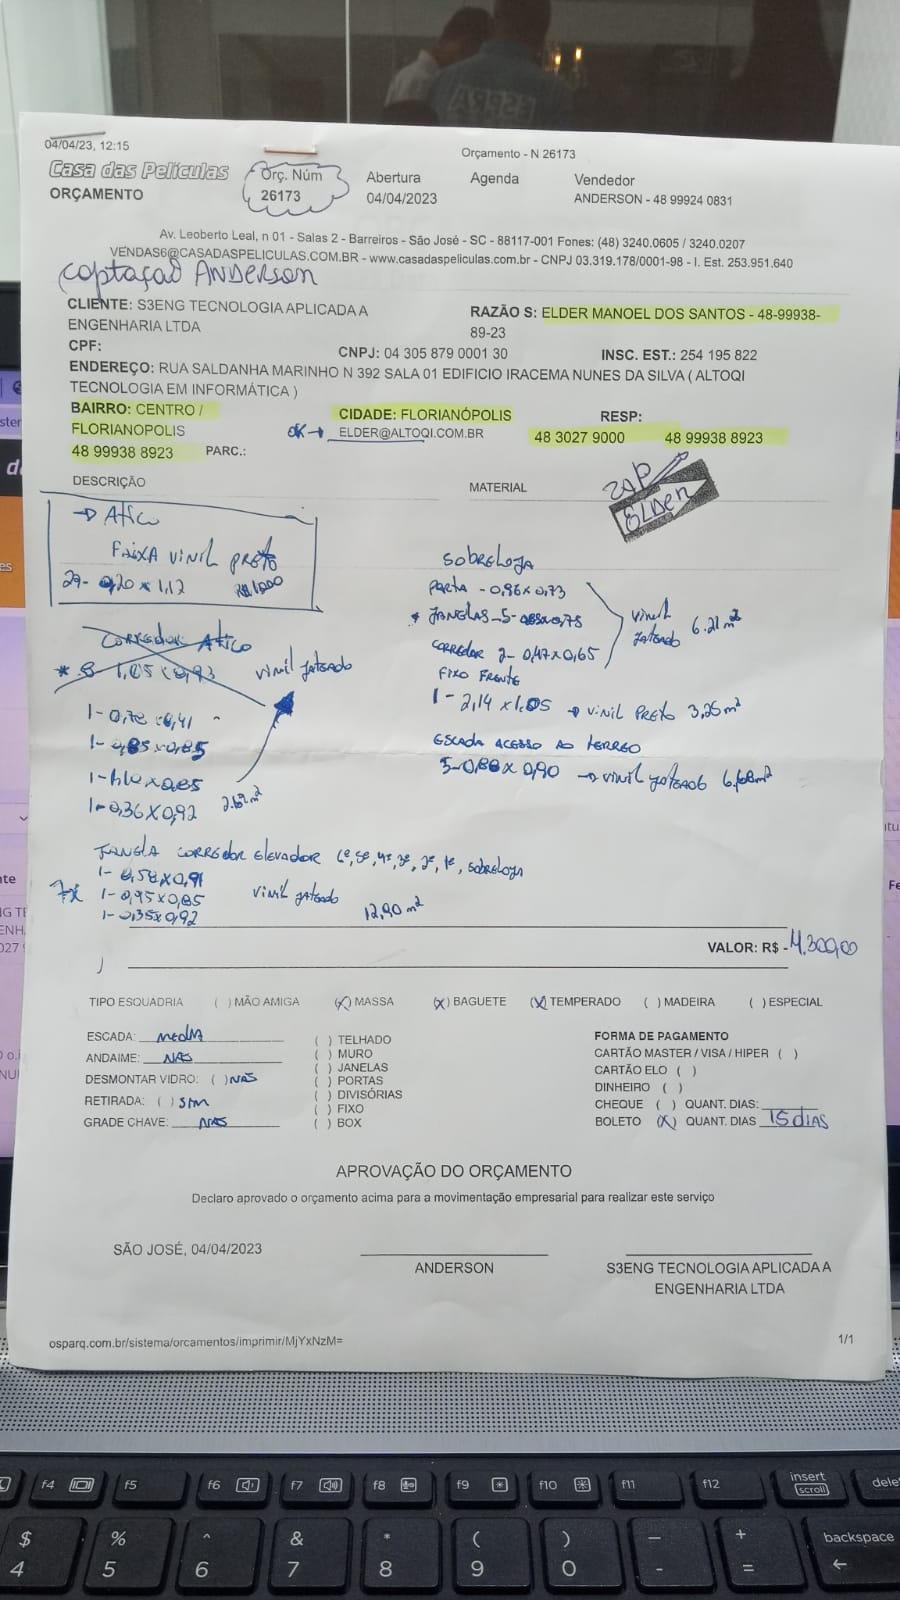 04/04/23, 12:15
Orçamento - N 26173
Casa das Películas
ORÇAMENTO
Orç. Núm
26173
Abertura
04/04/2023
Agenda
Vendedor
ANDERSON - 48 99924 0831
Av. Leoberto Leal, n 01 - Salas 2 - Barreiros - São José - SC - 88117-001 Fones: (48) 3240.0605 / 3240.0207
VENDAS6@CASADASPELICULAS.COM.BR - www.casadaspeliculas.com.br - CNPJ 03.319.178/0001-98 - I. Est. 253.951.640
Captação ANDERSON
CLIENTE: S3ENG TECNOLOGIA APLICADA A
ENGENHARIA LTDA
RAZÃO S: ELDER MANOEL DOS SANTOS - 48-99938-
89-23
CPF:
CNPJ: 04 305 879 0001 30
INSC. EST.: 254 195 822
ENDEREÇO: RUA SALDANHA MARINHO N 392 SALA 01 EDIFICIO IRACEMA NUNES DA SILVA ( ALTOQI
TECNOLOGIA EM INFORMÁTICA )
BAIRRO: CENTRO /
FLORIANOPOLIS
CIDADE: FLORIANÓPOLIS
RESP:
OK → ELDER@ALTOQI.COM.BR
48 3027 9000
48 99938 8923
48 99938 8923
PARC.:
DESCRIÇÃO
MATERIAL
ZAP
ELDER
→ ATICO
FAIXA VINIL PRETO
29- 0,20 x 1,12
CORREDOR ATICO
* 8 1,05 x 0,93
VINIL JATEADO
1-0,78 x 0,41
1-0,85 x 0,85
1-1,10 x 0,85
1-0,36 x 0,92
SOBRELOJA
PORTA - 0,96 x 0,73
* JANELAS - 5 - 0,85 x 0,75
CORREDOR 2 - 0,47 x 0,65
VINIL
JATEADO 6.21 m²
FIXO FRENTE
1 - 2,14 x 1.05 → VINIL PRETO 3,25 m²
ESCADA ACESSO AO TERREO
5-0,88 x 0,90 → VINIL JATEADO
JANELA CORREDOR ELEVADOR 6º, 5º, 4º, 3º, 2º, 1º, SOBRELOJA
1- 0,58 x 0,91
7x 1-0,95 x 0,85
VINIL JATEADO
1-0,35 x 0,92
12,90 m²
VALOR: R$ - 4.300,00
TIPO ESQUADRIA ( ) MÃO AMIGA (X) MASSA (X) BAGUETE (X) TEMPERADO ( ) MADEIRA ( ) ESPECIAL
ESCADA: MEDIA
ANDAIME: NÃO
DESMONTAR VIDRO: ( ) NÃO
RETIRADA: ( ) SIM
GRADE CHAVE: NÃO
( ) TELHADO
( ) MURO
( ) JANELAS
( ) PORTAS
( ) DIVISÓRIAS
( ) FIXO
( ) BOX
FORMA DE PAGAMENTO
CARTÃO MASTER / VISA / HIPER ( )
CARTÃO ELO ( )
DINHEIRO ( )
CHEQUE ( ) QUANT. DIAS:
BOLETO (X) QUANT. DIAS 15 DIAS
APROVAÇÃO DO ORÇAMENTO
Declaro aprovado o orçamento acima para a movimentação empresarial para realizar este serviço
SÃO JOSÉ, 04/04/2023
ANDERSON
S3ENG TECNOLOGIA APLICADA A
ENGENHARIA LTDA
osparq.com.br/sistema/orcamentos/imprimir/MjYxNzM=
1/1
f4 f5 f6 f7 f8 f9 f10 f11 f12 insert
scroll
$ % ^ & * ( ) _ + backspace
4 5 6 7 8 9 0 - = ←